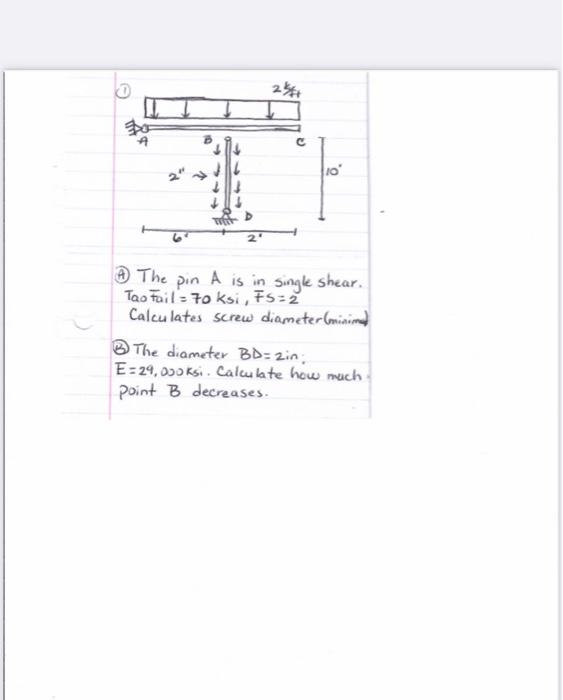 1
2 k/ft
A
B
C
2"
10'
D
6'
2'
A The pin A is in single shear.
Tao Fail = 70 ksi, FS = 2
Calculates screw diameter (minima)
B The diameter BD = 2in;
E = 29,000 ksi. Calculate how much
point B decreases.